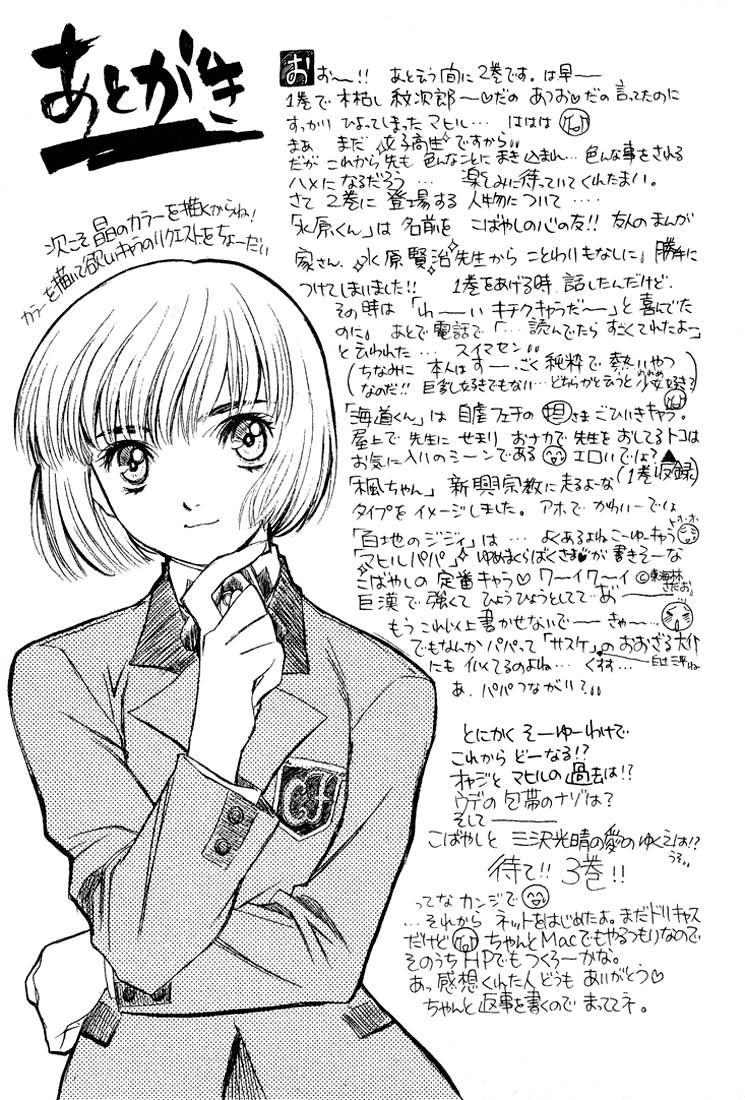 あとがき
おお〜!! あと云う間に2巻です。は早ー
1巻で木枯し紋次郎〜♡だの あつお♡だの言ってたのに
すっかり ひよってしまった マヒル… ははは
まあ まだ 女子高生 ですから
だが これから先も 色んなことに まき込まれ… 色んな事をされる
ハメに なるだろう … 楽しみに待っていてくれたまい。
さて 2巻に 登場する 人物について‥‥
「氷原くん」は 名前を こばやしの心の友!! 友人のまんが
家さん、氷原賢治先生から ことわりもなしに 勝手に
つけてしまいました!! 1巻をあげる時、話したんだけど、
その時は「わーーい キチクキャラだ〜」と喜んでた
のに あとで電話で「… 読んでたら すごくてれたよー」
と云われた… スイマセン
(ちなみに 本人は すー‥ごく 純粋で 熱いやつ
なのだ!! 巨乳好きでもない…どちらかと云うと 少女好き?)
「海道くん」は 自虐フェチの 担さま ごひいきキャラ。
屋上で 先生に せまり おナカで 先生を おしてるトコは
お気に入りのシーンである エロいでしょ?
(1巻収録)
「楓ちゃん」 新興宗教に走るよーな
タイプをイメージしました。アホで かわいーでしょ
「百地のジジィ」は … よくあるよね こーゆーキャラ
「マヒルパパ」 ゆめまくらばくさま♥が 書きそーな
こばやしの 定番キャラ♡ ワ〜イワ〜イ ©東海林さだお
巨漢で 強くて ひょうひょうとしてて
もう これ以上 書かせないで── きゃー、
でもなんか パパって「サスケ」の おおざる大介
にも 似てるのよね… くすす… 白土三平ね
あ、パパつながり?
とにかく そーゆーわけで
これから どーなる!?
オヤジと マヒルの 過去は!?
ウデの 包帯のナゾは?
そして────
こばやしと 三沢光晴の愛の ゆくえは!?
待て!! 3巻!!
ってな カンジで
… それから ネットをはじめたよ。まだドリキャス
だけど ちゃんとMacでもやるつもりなので
そのうち HPでも つくろーかな。
あっ 感想くれた人 どうも ありがとう♡
ちゃんと 返事を書くので まっててネ。
次こそ 晶のカラーを描くからね!
カラーを描いて欲しいキャラのリクエストをちょーだい